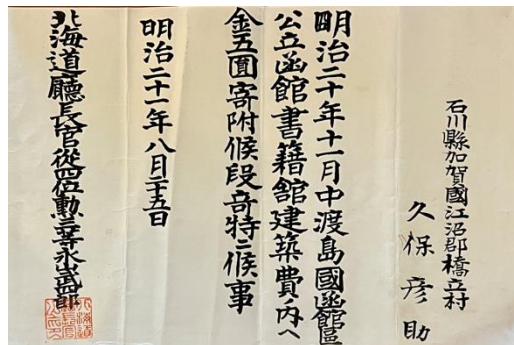 石川縣加賀國江沼郡橋立村
久保彦助
明治二十年十一月中渡島國函館區
公立函館書籍舘建築費ノ内ヘ
金五圓寄附候段竒特ニ候事
明治二十一年八月二十五日
北海道廳長官從四位勲三等永山武四郎